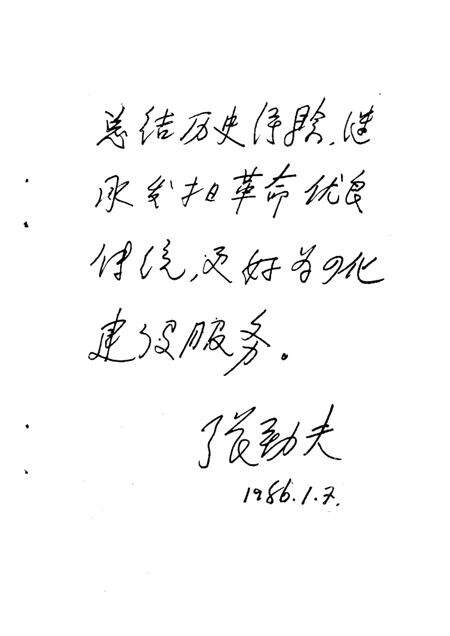 总结历史经验,继
承发扬革命优良
传统,更好为四化
建设服务。
张劲夫
1986.1.7.